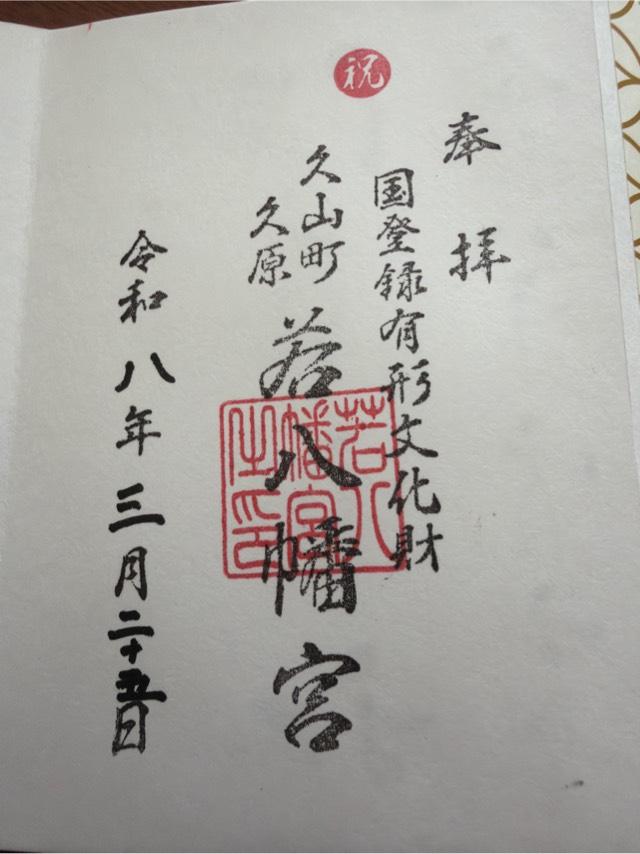 祝
奉拝
国登録有形文化財
久山町
久原
若八幡宮
若八
幡宮
之印
令和八年三月二十五日